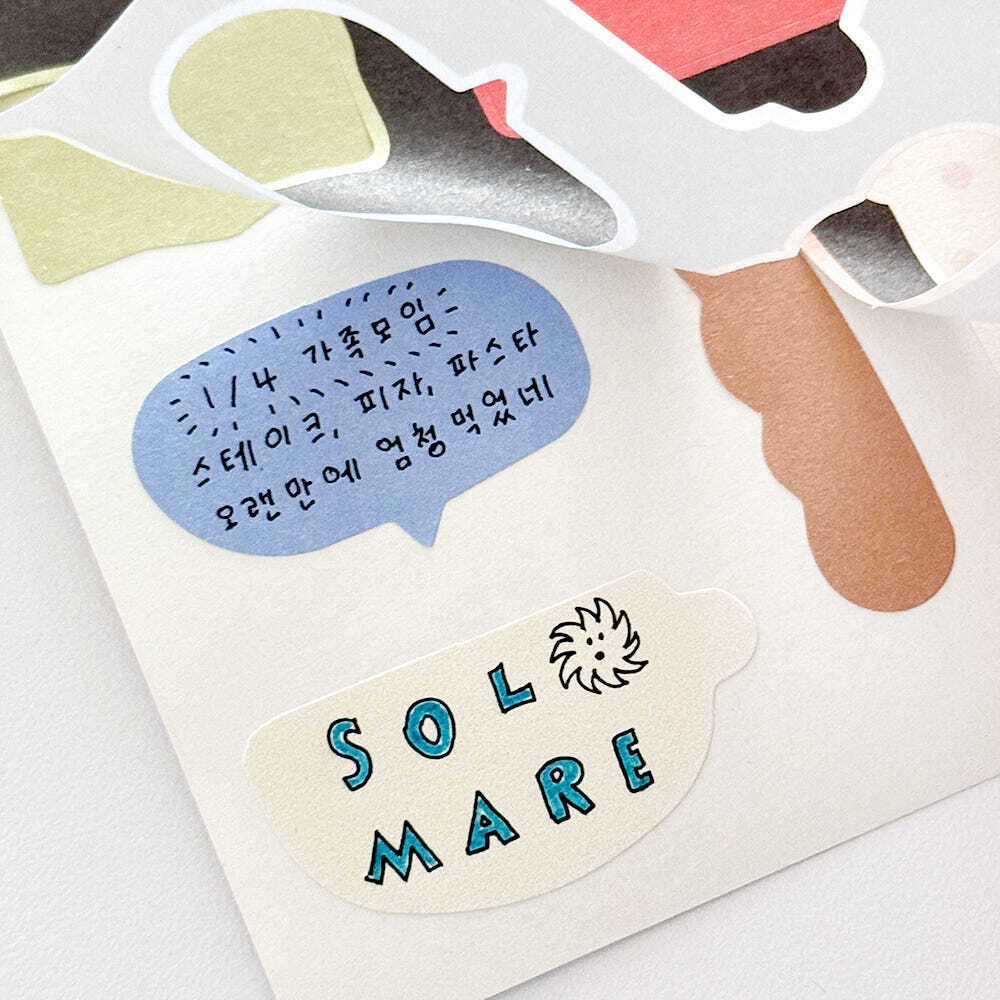 1/4 가족모임
스테이크, 피자, 파스타
오랜만에 엄청 먹었네
SOL
MARE